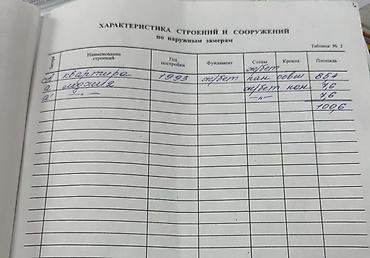 ХАРАКТЕРИСТИКА СТРОЕНИЙ И СООРУЖЕНИЙ
по наружным замерам
Таблица № 2
Литера Наименование строений Год постройки Фундамент Стены Кровля Площадь
А квартира 1993 ж/бет ж/бет пан. совм 85,4
а лоджия ж/бет пан. 7,6
а' —"— —"— 7,6
100,6